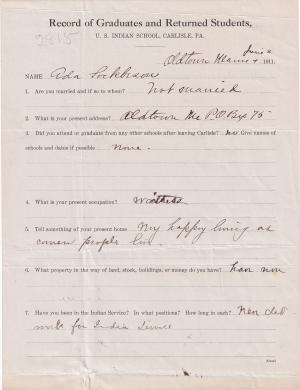 2815
Record of Graduates and Returned Students,
U. S. INDIAN SCHOOL, CARLISLE, PA.
Oldtown Maine June 2 1911.
NAME Ada
1. Are you married and if so to whom? Not married
2. What is your present address? Oldtown Me PO Box 75
3. Did you attend or graduate from any other schools after leaving Carlisle? no Give names
of schools and dates if possible none.
4. What is your present occupation?
5. Tell something of your present home My happy living as
people live
6. What property in the way of land, stock, buildings, or money do you have? have non
7. Have you been in the Indian Service? In what positions? How long in each?
for Indian Service